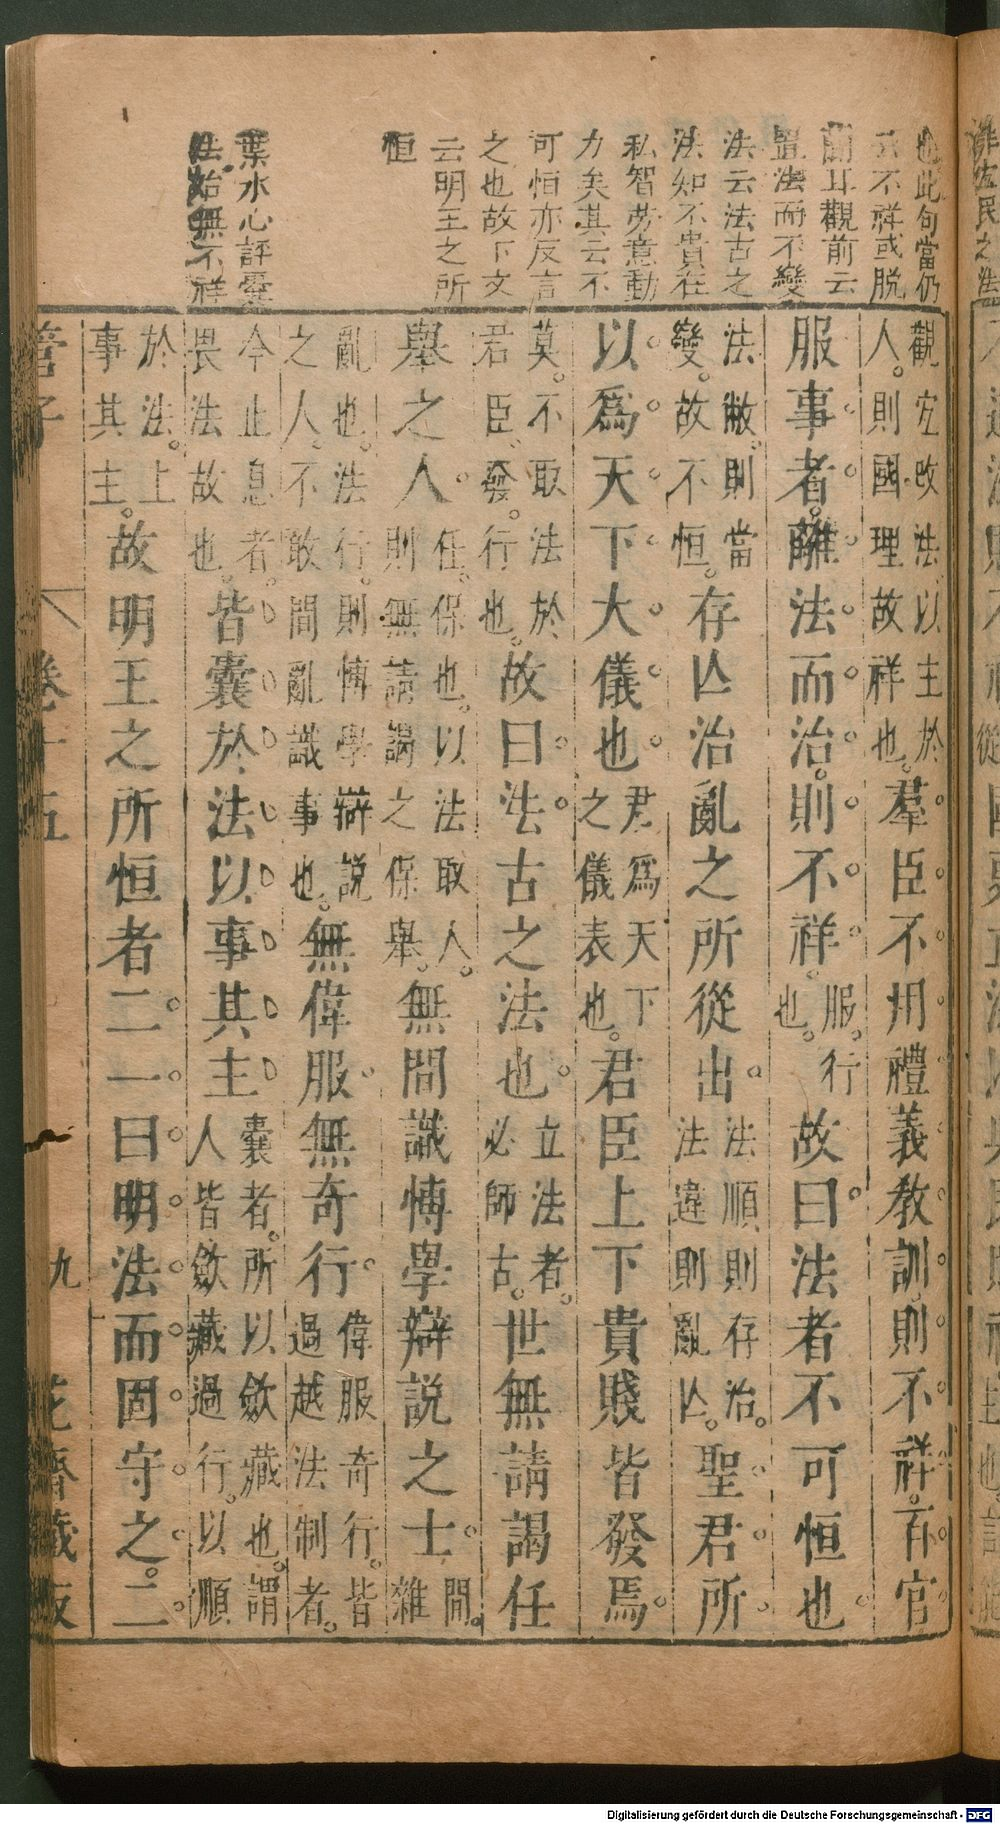 也此句當仍
云不祥或脫
簡耳觀前云
置法而不變
法云法古之
法知不貴在
私智労意動
力矣其云不
可恒亦反言
之也故下文
云明王之所
恒
葉水心評囊
法治無不祥
觀宄改法以主於人。則國理故祥也。羣臣不用禮義教訓。則不祥。百官
服事者。離法而治。則不祥。服。行也。故曰法者不可恒也
法敝。則當變。故不恒。存亾治亂之所從出法順則存治。法違則亂亾。聖君所
以爲天下大儀也君爲天下之儀表也。君臣上下貴賤皆發焉
莫不取法於君臣。發行也。故曰法古之法也立法者。必師古。世無請謁任
舉之人任保也。以法取人。則無請謁之保舉。無間識博學辯説之士間。雜
亂也。法行。則博學辯説之人。不敢間亂識事也。無偉服無奇行偉服奇行。皆過越法制者。
今止息者。畏法故也。皆囊於法以事其主囊者。所以斂藏也。謂人皆斂藏過行。以順
於法。上事其主。故明王之所恒者二一曰明法而固守之。二
管子　卷十五　九　花齋藏板
Digitalisierung gefördert durch die Deutsche Forschungsgemeinschaft - DFG